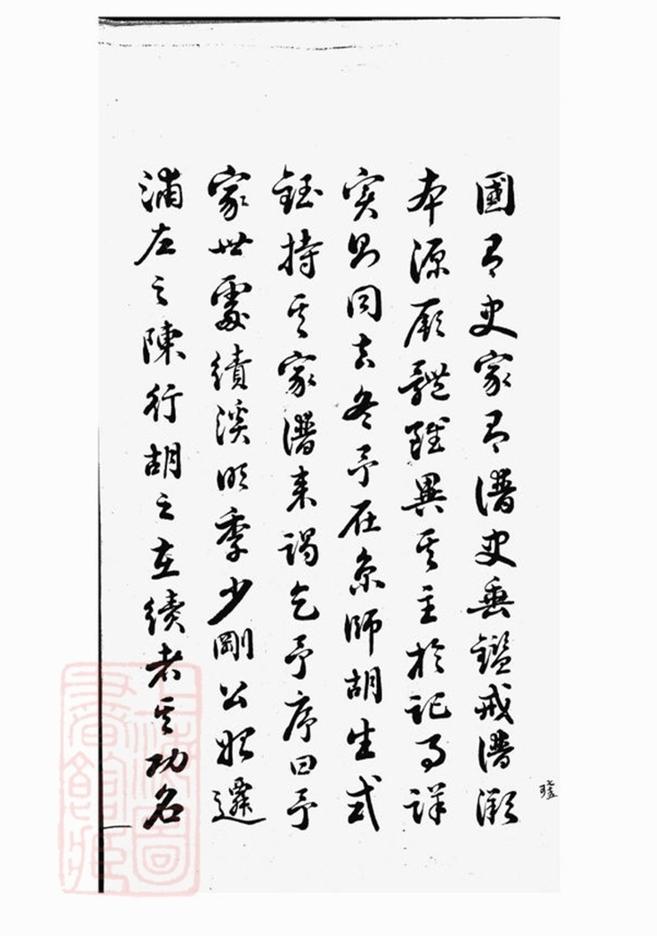 國有史家有譜史垂鑑戒譜溯
本源厥體雖異其主於記事詳
實則同去冬予在京師胡生式
鈺持其家譜來謁乞予序曰予
家世處績溪明季少剛公始遷
浦左之陳行胡之在績者其功名
上海圖書館藏